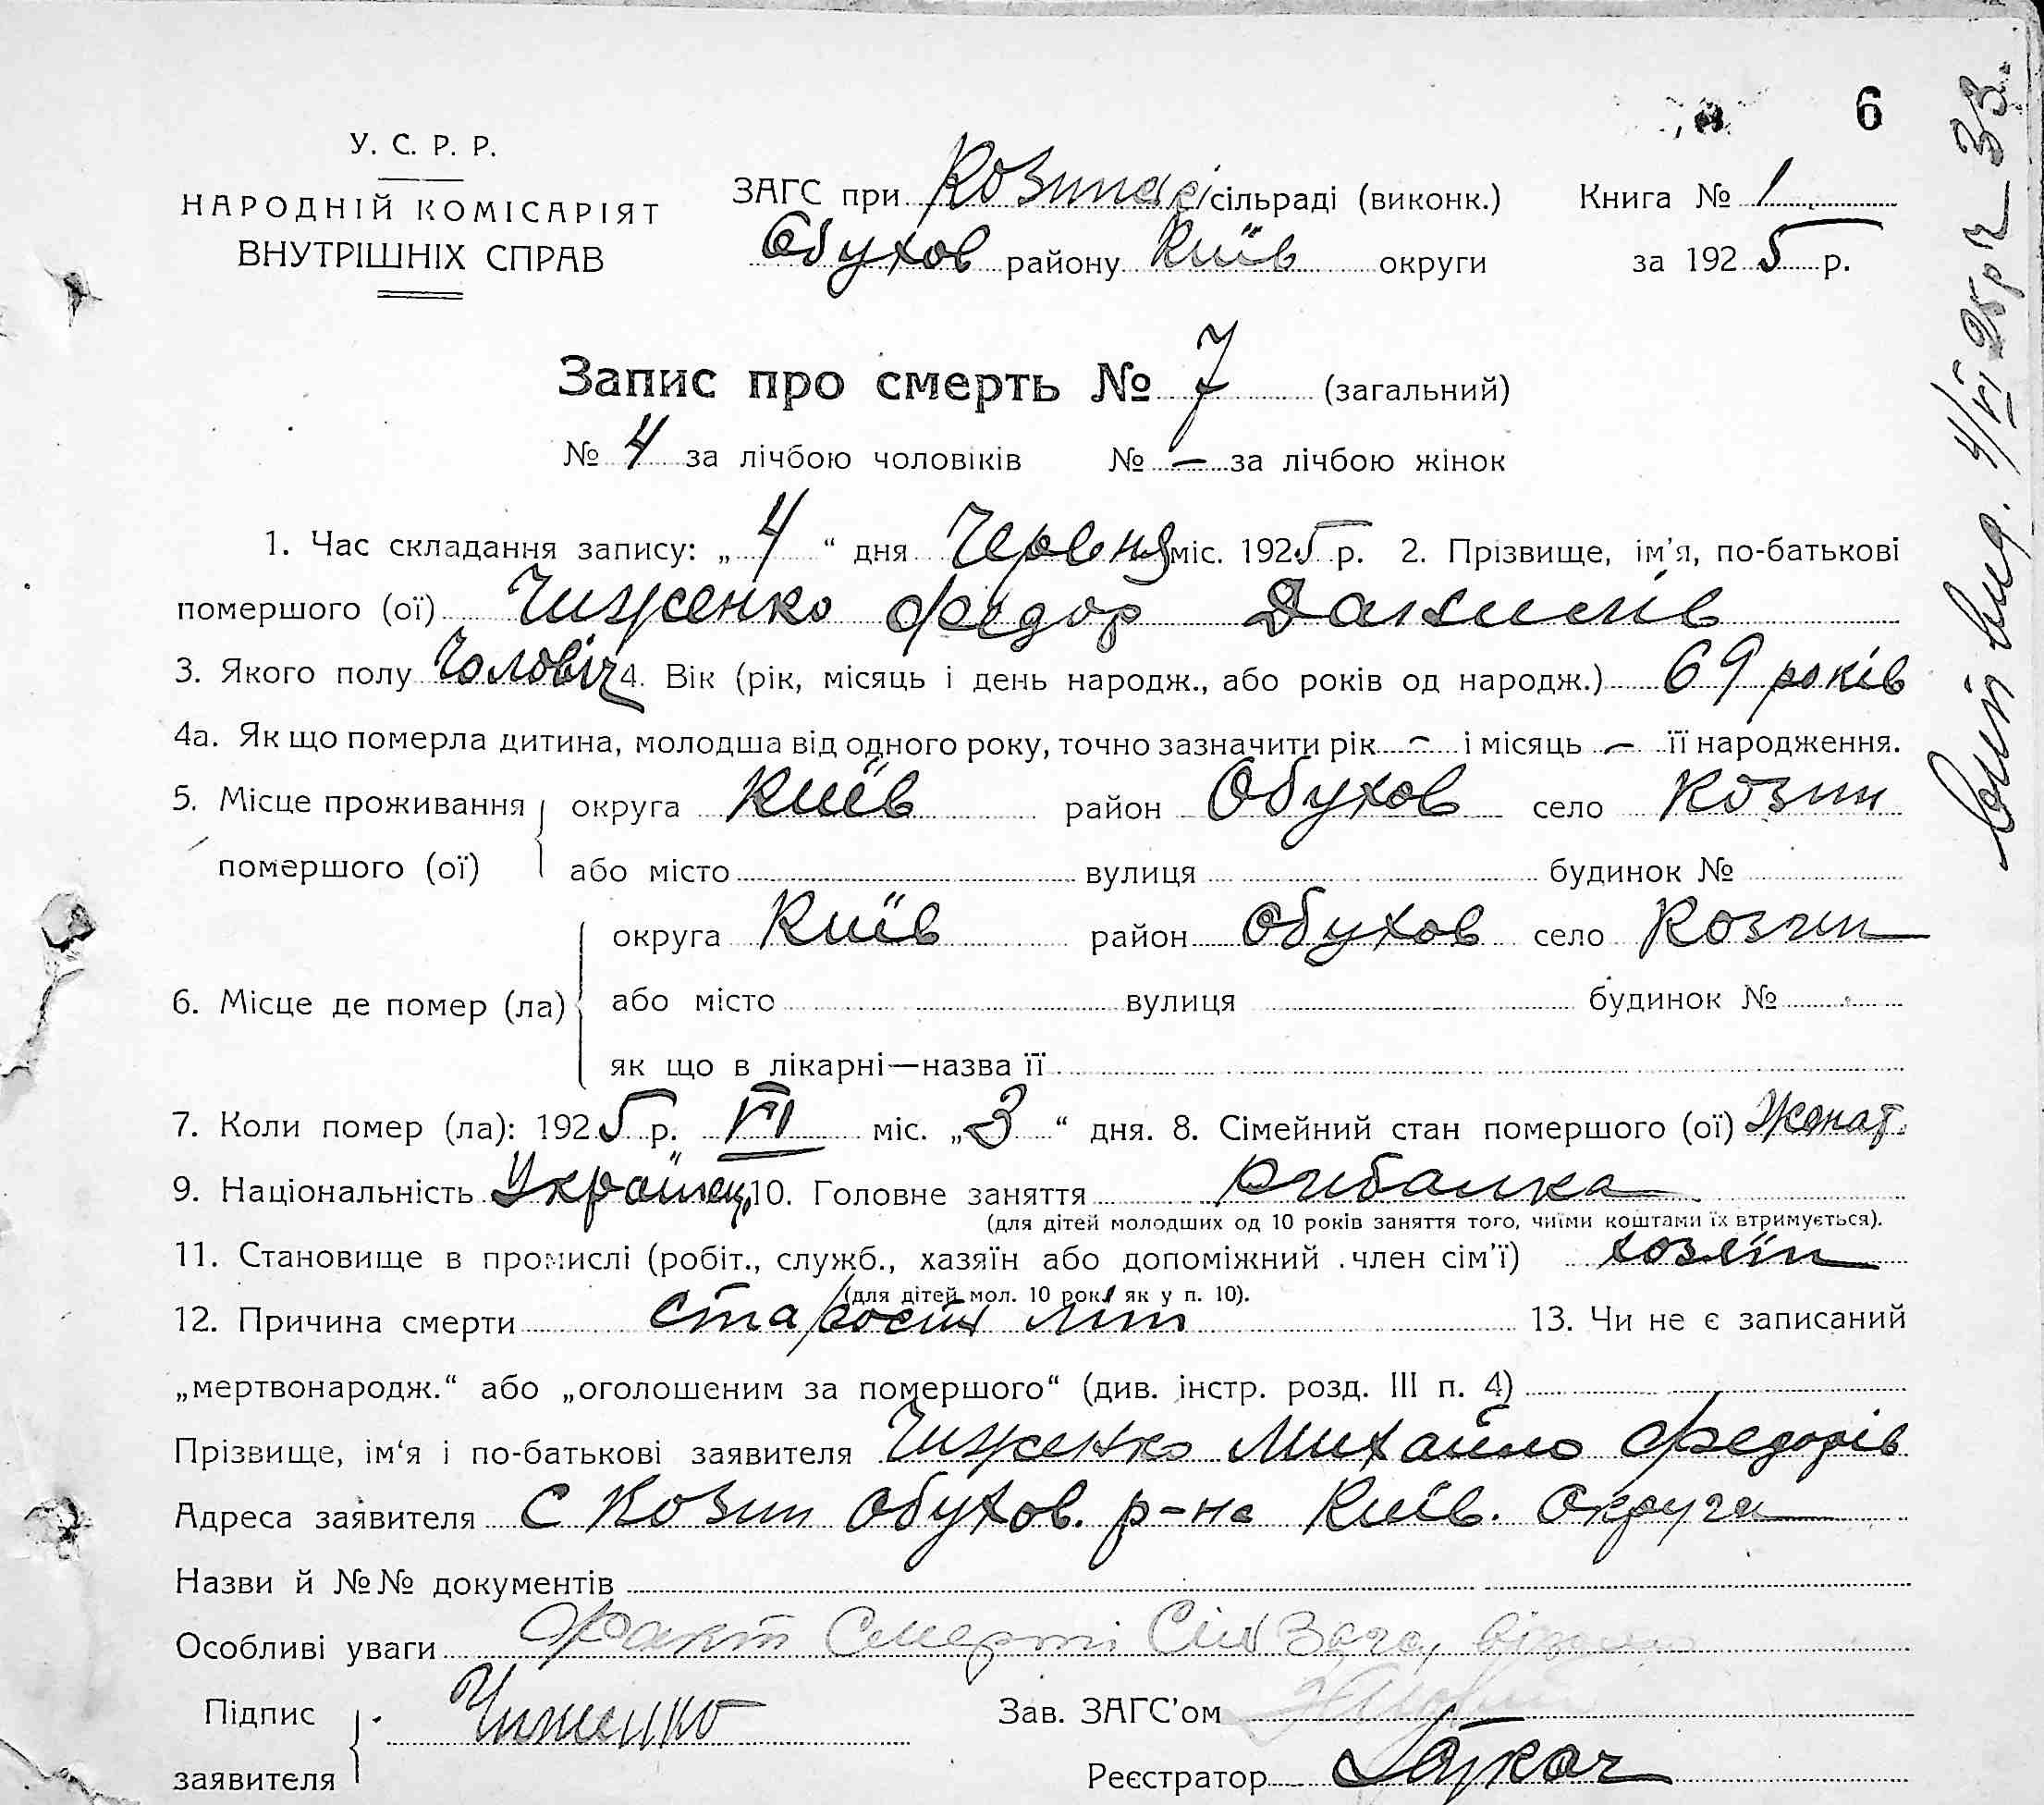 6
У. С. Р. Р.
НАРОДНІЙ КОМІСАРІЯТ
ВНУТРІШНІХ СПРАВ
ЗАГС при Козинськ сільраді (виконк.) Книга № 1
Обухов району Київ округи за 1925 р.
Запис про смерть № 7 (загальний)
№ 4 за лічбою чоловіків № — за лічбою жінок
1. Час складання запису: „4“ дня Червня міс. 1925 р. 2. Прізвище, ім'я, по-батькові
помершого (ої) Чиженко Федор
3. Якого полу Чоловіч 4. Вік (рік, місяць і день народж., або років од народж.) 69 років
4а. Як що померла дитина, молодша від одного року, точно зазначити рік — і місяць — її народження.
5. Місце проживання округа Київ район Обухов село Козин
помершого (ої) або місто вулиця будинок №
округа Київ район Обухов село Козин
6. Місце де помер (ла) або місто вулиця будинок №
як що в лікарні—назва її
7. Коли помер (ла): 1925 р. VI міс. „3“ дня. 8. Сімейний стан помершого (ої) Жонат.
9. Національність Українец 10. Головне заняття Рибалка
(для дітей молодших од 10 років заняття того, чиїми коштами їх втримується).
11. Становище в промислі (робіт., служб., хазяїн або допоміжний член сім'ї) хозяїн
(для дітей мол. 10 рок. як у п. 10).
12. Причина смерти Старость літ 13. Чи не є записаний
„мертвонародж.“ або „оголошеним за помершого“ (див. інстр. розд. III п. 4)
Прізвище, ім'я і по-батькові заявителя Чиженко Михайло Федорів
Адреса заявителя с Козин Обухов. р-на Київ. Округи
Назви й №№ документів
Особливі уваги Факт Смерті
Підпис Чиженко Зав. ЗАГС'ом
заявителя Реєстратор Ткач
4/VI 25 р